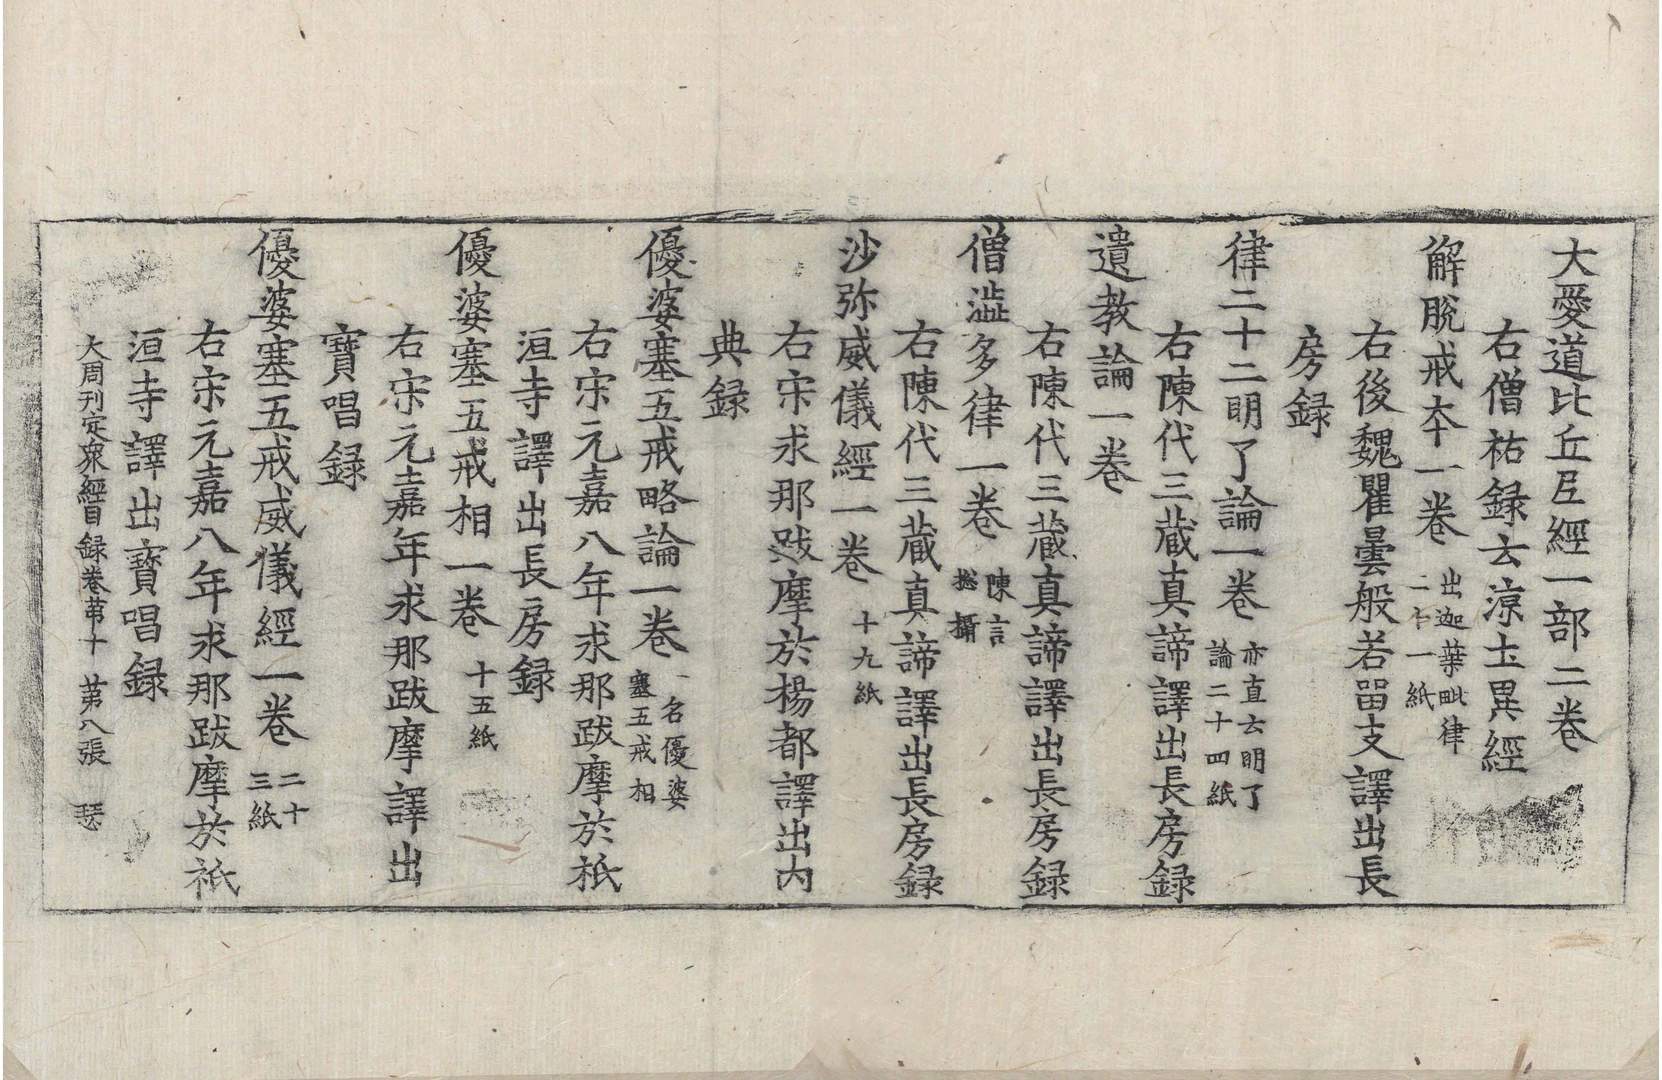 大愛道比丘尼經一部二卷
右僧祐録云涼土異經
解脫戒本一卷 出迦葉毗律二十一紙
右後魏瞿曇般若留支譯出長
房録
律二十二明了論一卷 亦直云明了論二十四紙
右陳代三蔵真諦譯出長房録
遺教論一卷
右陳代三蔵真諦譯出長房録
僧澁多律一卷 陳言揔攝
右陳代三蔵真諦譯出長房録
沙弥威儀經一卷 十九紙
右宋求那跋摩於楊都譯出內
典録
優婆塞五戒略論一卷 一名優婆塞五戒相
右宋元嘉八年求那跋摩於祇
洹寺譯出長房録
優婆塞五戒相一卷 十五紙
右宋元嘉年求那跋摩譯出
寶唱録
優婆塞五戒威儀經一卷 二十三紙
右宋元嘉八年求那跋摩於祇
洹寺譯出寶唱録
大周刊定衆經目録卷苐十 苐八張 瑟